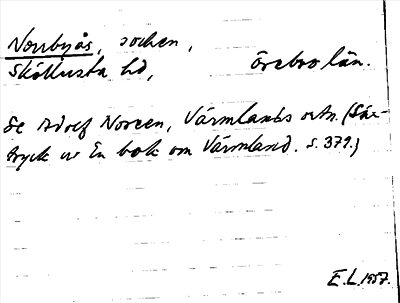 Norrbyås, socken,
Sköllersta hd, Örebro län.
Se Adolf Noreen, Värmlands ortn. (Sär-
tryck ur En bok om Värmland. s. 379.)
E.L. 1957.